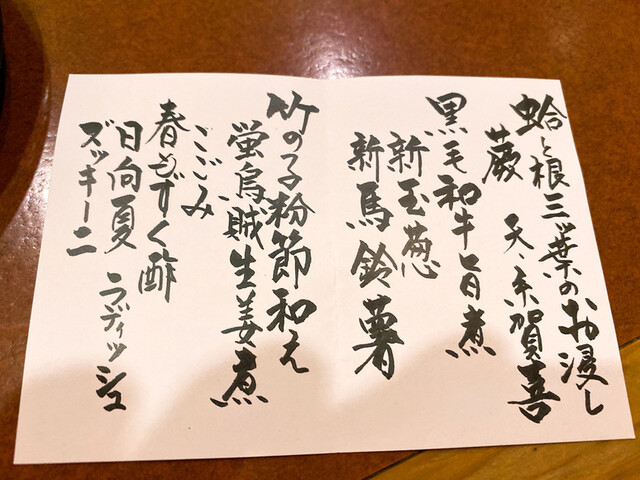 蛤と根三ッ葉のお浸し
蕨 天・糸賀喜
黒毛和牛旨煮
新玉葱
新馬鈴薯
竹の子粉節和え
蛍烏賊生姜煮
こごみ
春もずく酢
日向夏 ラディッシュ
ズッキーニ